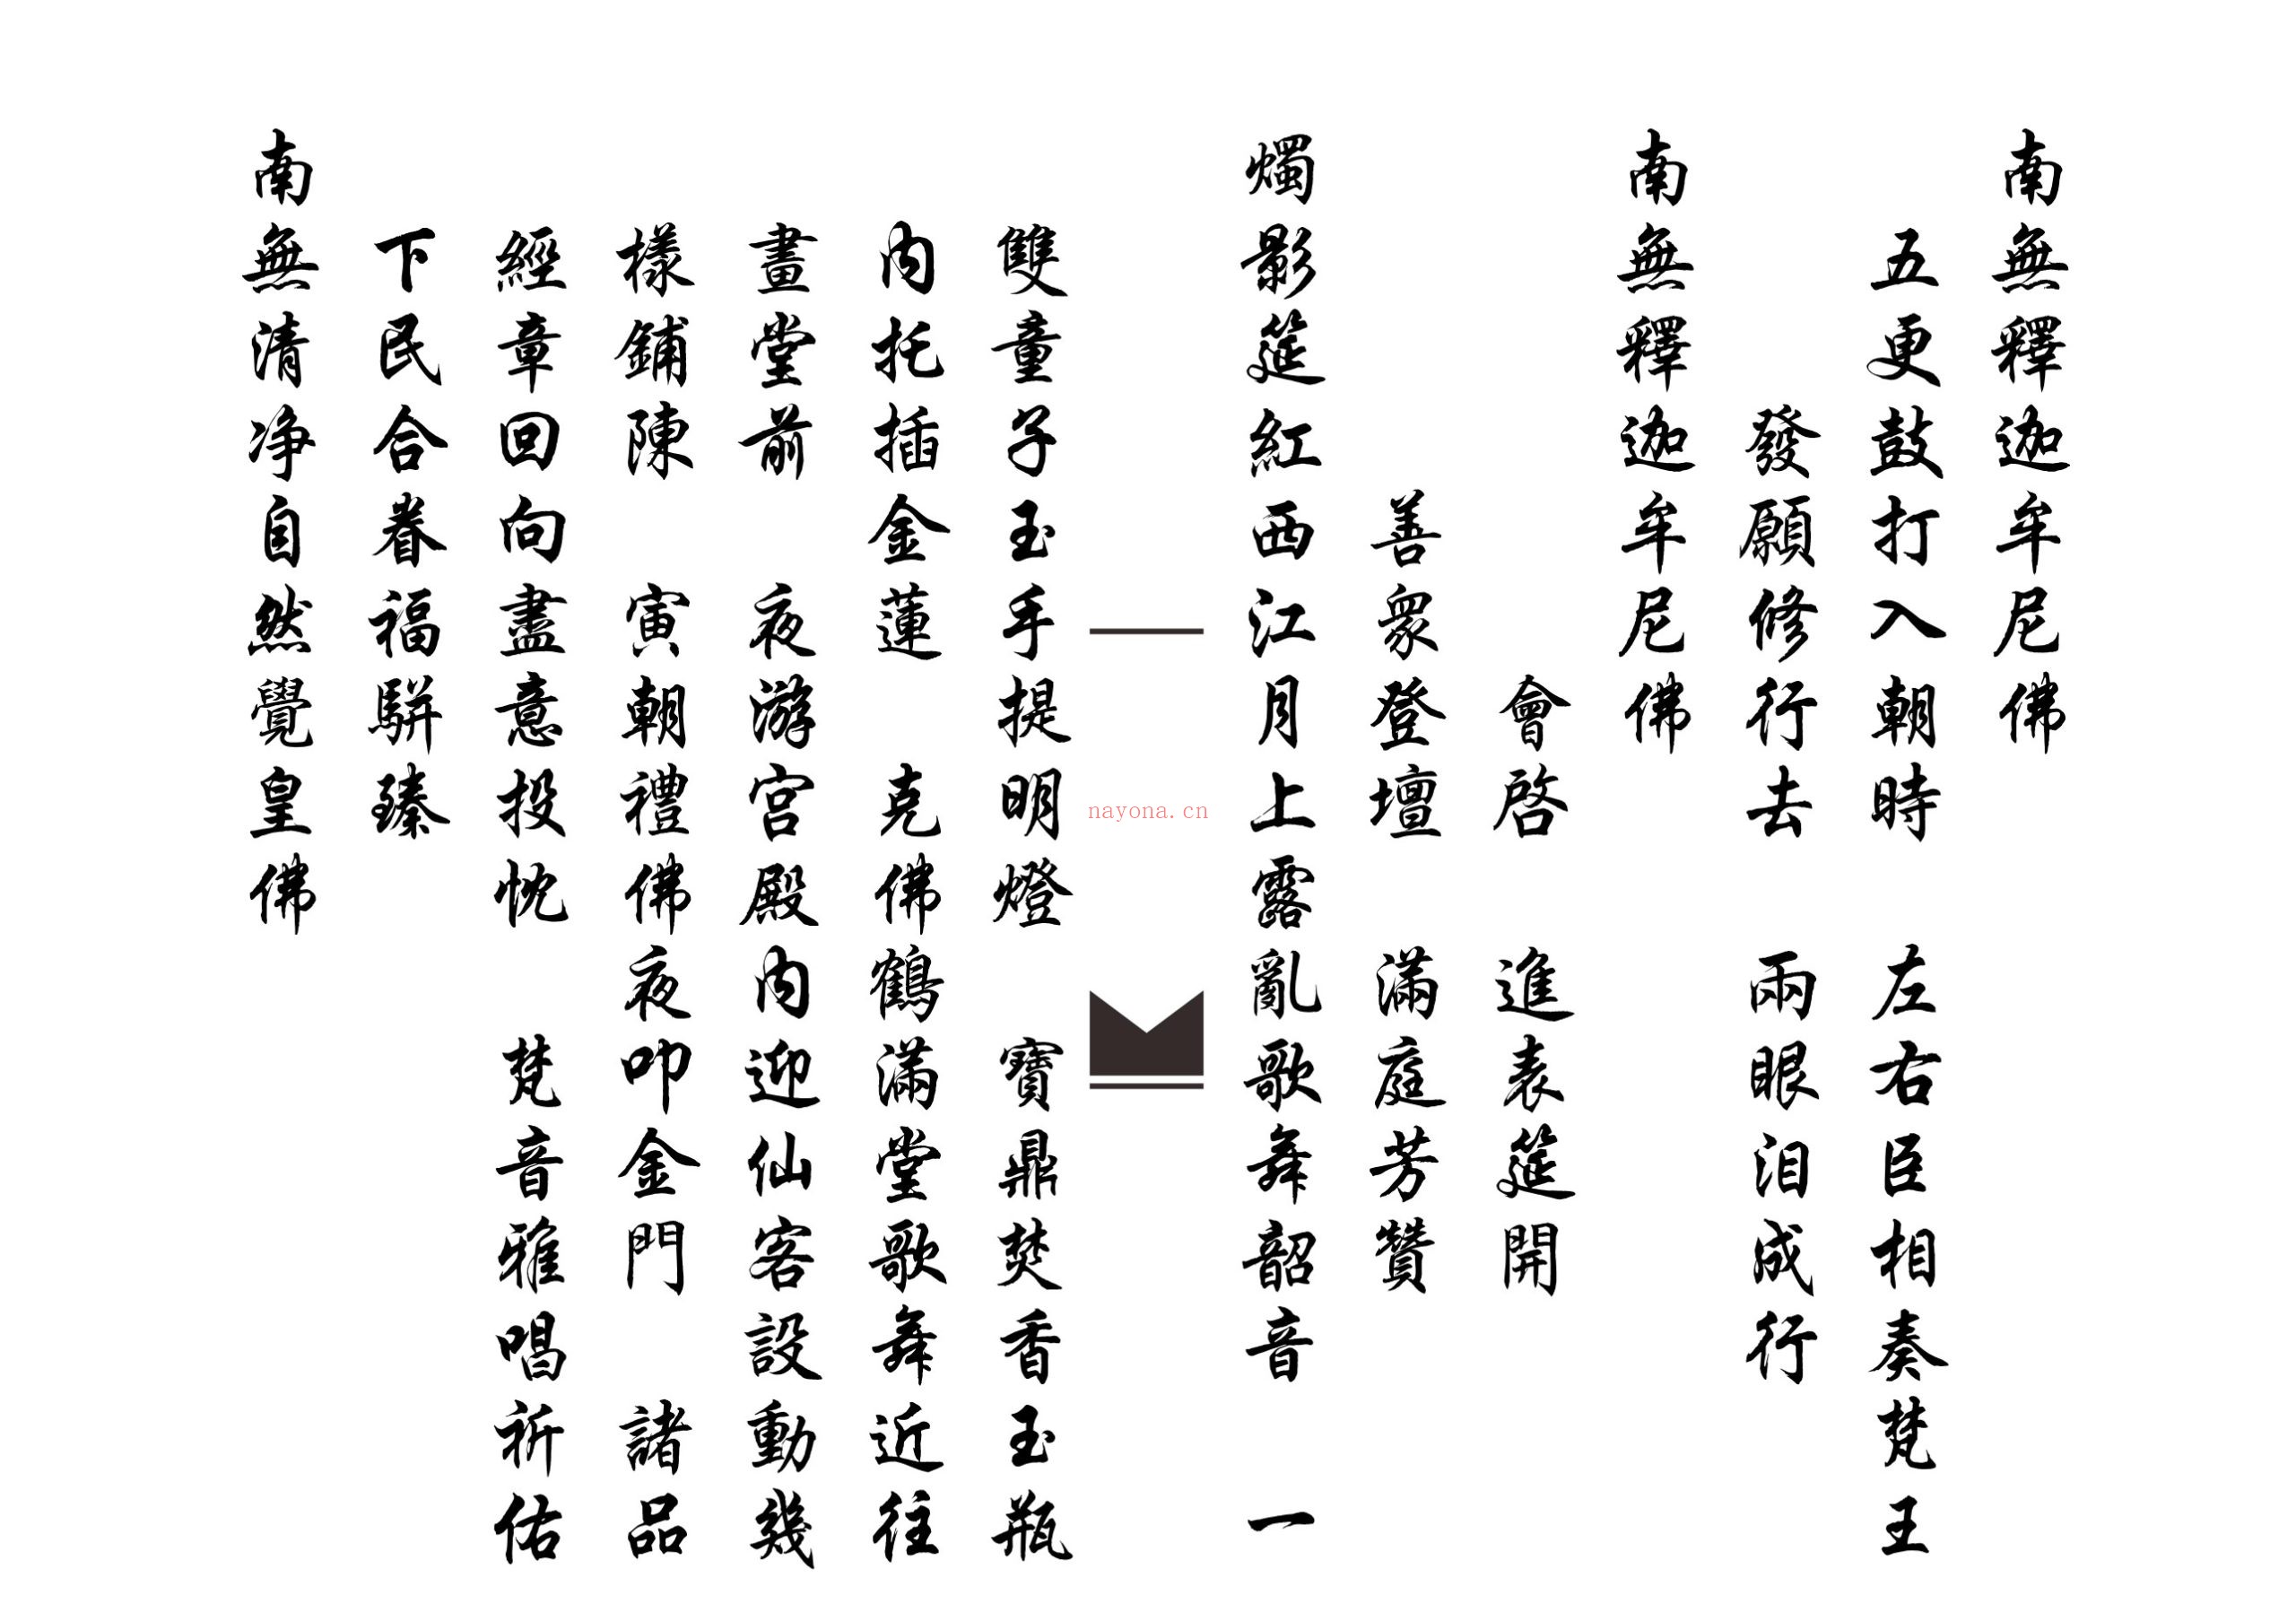 南無釋迦牟尼佛
五更鼓打入朝時 左右臣相奏梵王
發願修行去 兩眼泪成行
南無釋迦牟尼佛
會啓 進表筵開
善眾登壇 滿庭芳贊
燭影筵紅西江月上露亂歌舞韶音 一
nayona.cn
雙童子玉手提明燈 寶鼎焚香玉瓶
内托插金蓮 克佛鶴滿堂歌舞近往
畫堂前 夜游宫殿内迎仙客設動幾
樣鋪陳 寅朝禮佛夜叩金門 諸品
經章回向盡意投忱 梵音雅唱祈佑
下民合眷福駢臻
南無清净自然覺皇佛